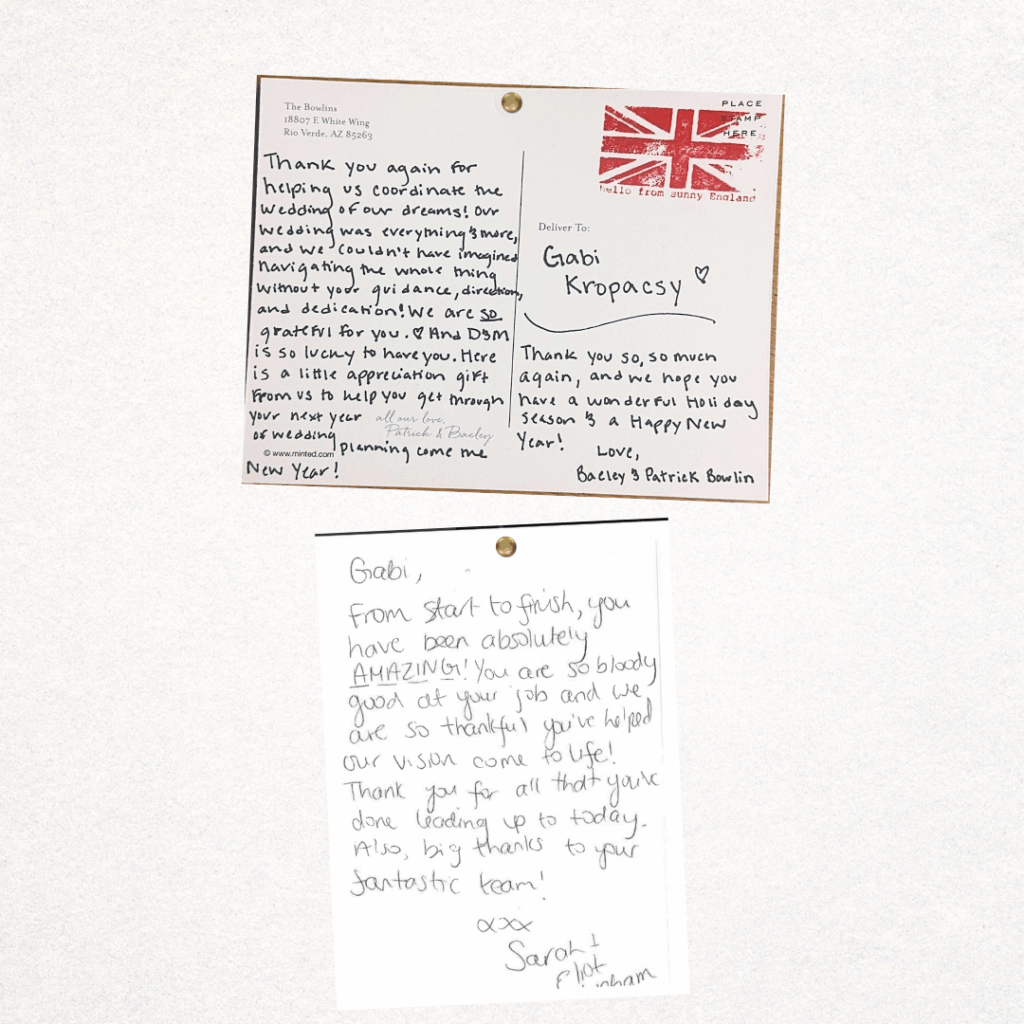 The Bowlins
18807 E White Wing
Rio Verde, AZ 85263
Thank you again for
helping us coordinate the
wedding of our dreams! Our
wedding was everything & more,
and we couldn't have imagined
navigating the whole thing
without your guidance, direction,
and dedication! We are so
grateful for you. ♡ And D&M
is so lucky to have you. Here
is a little appreciation gift
from us to help you get through
your next year
of wedding planning come the
New Year!
all our love,
Patrick & Baeley
© www.minted.com
PLACE
STAMP
HERE
hello from sunny England
Deliver To:
Gabi
Kropacsy ♡
Thank you so, so much
again, and we hope you
have a wonderful Holiday
season & a Happy New
Year!
Love,
Baeley & Patrick Bowlin
Gabi,
From start to finish, you
have been absolutely
AMAZING! You are so bloody
good at your job and we
are so thankful you've helped
our vision come to life!
Thank you for all that you've
done leading up to today.
Also, big thanks to your
fantastic team!
xxx
Sarah &
Eliot